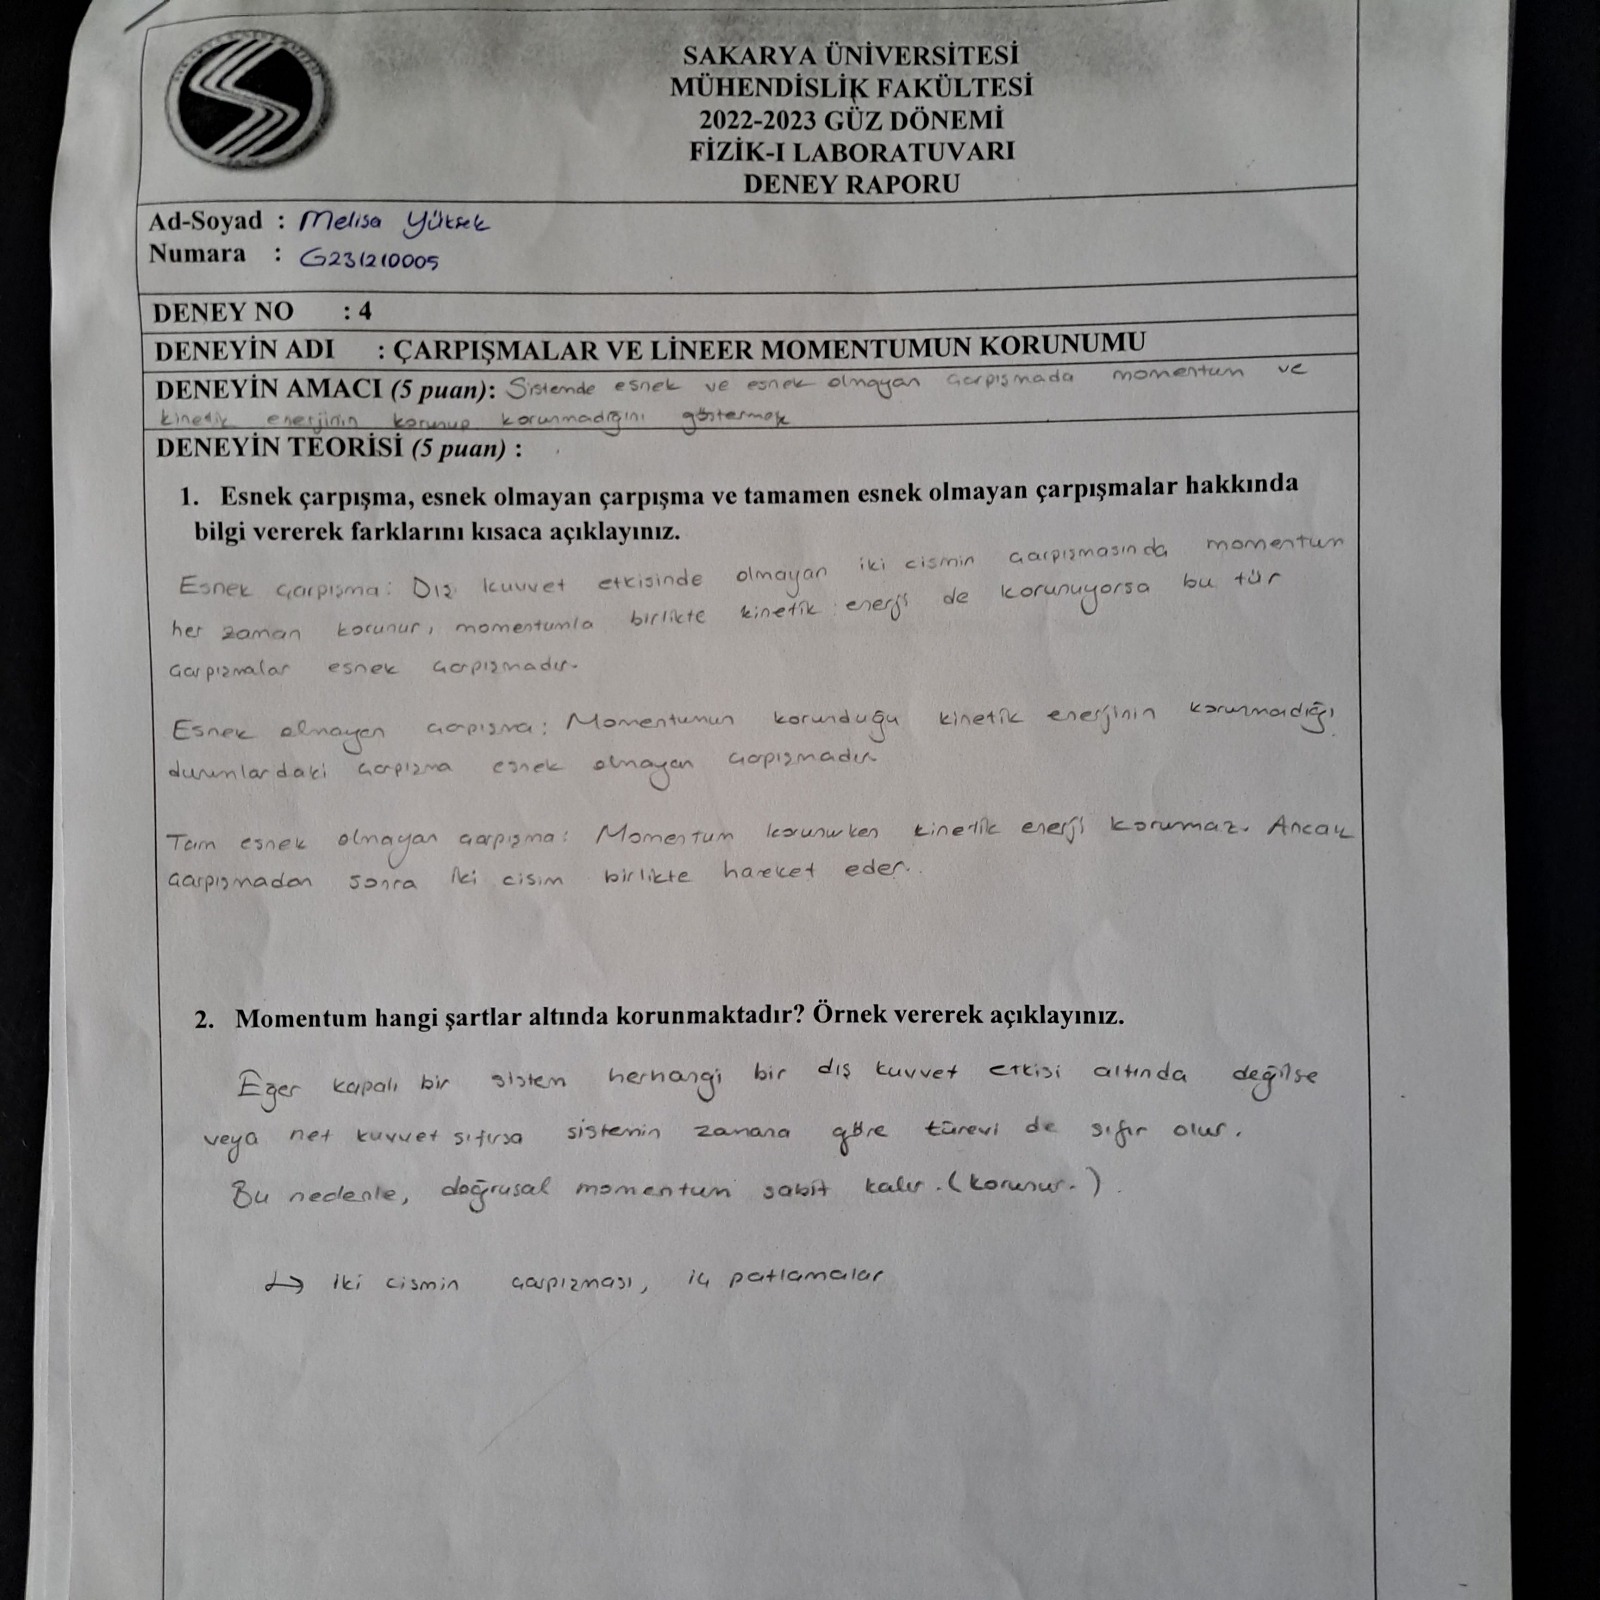 SAKARYA ÜNİVERSİTESİ
MÜHENDİSLİK FAKÜLTESİ
2022-2023 GÜZ DÖNEMİ
FİZİK-I LABORATUVARI
DENEY RAPORU
Ad-Soyad : Melisa Yüksek
Numara : G231210005
DENEY NO : 4
DENEYİN ADI : ÇARPIŞMALAR VE LİNEER MOMENTUMUN KORUNUMU
DENEYİN AMACI (5 puan): Sistemde esnek ve esnek olmayan çarpışmada momentum ve
kinetik enerjinin korunup korunmadığını göstermek
DENEYİN TEORİSİ (5 puan) :
1. Esnek çarpışma, esnek olmayan çarpışma ve tamamen esnek olmayan çarpışmalar hakkında
bilgi vererek farklarını kısaca açıklayınız.
Esnek çarpışma: Dış kuvvet etkisinde olmayan iki cismin çarpışmasında momentum
her zaman korunur, momentumla birlikte kinetik enerji de korunuyorsa bu tür
çarpışmalar esnek çarpışmadır.
Esnek olmayan çarpışma: Momentumun korunduğu kinetik enerjinin korunmadığı
durumlardaki çarpışma esnek olmayan çarpışmadır
Tam esnek olmayan çarpışma: Momentum korunurken kinetik enerji korunmaz. Ancak
çarpışmadan sonra iki cisim birlikte hareket eder.
2. Momentum hangi şartlar altında korunmaktadır? Örnek vererek açıklayınız.
Eğer kapalı bir sistem herhangi bir dış kuvvet etkisi altında değilse
veya net kuvvet sıfırsa sistemin zamana göre türevi de sıfır olur.
Bu nedenle, doğrusal momentum sabit kalır. (korunur.)
↳ iki cismin çarpışması, iç patlamalar